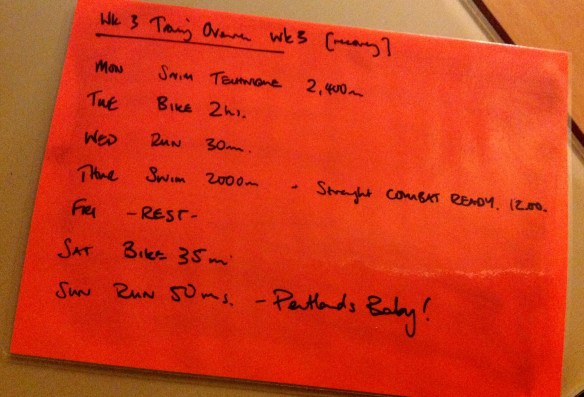 Wk 3 Training Overview Wk3 [recovery]
MON Swim TECHNIQUE 2,400m
TUE BIKE 2hs.
WED RUN 30m.
THUR Swim 2000m - Strenght COMBAT READY. 1200.
FRI -REST-
SAT BIKE 35m
SUN RUN 50ms. - Pentlands Baby!